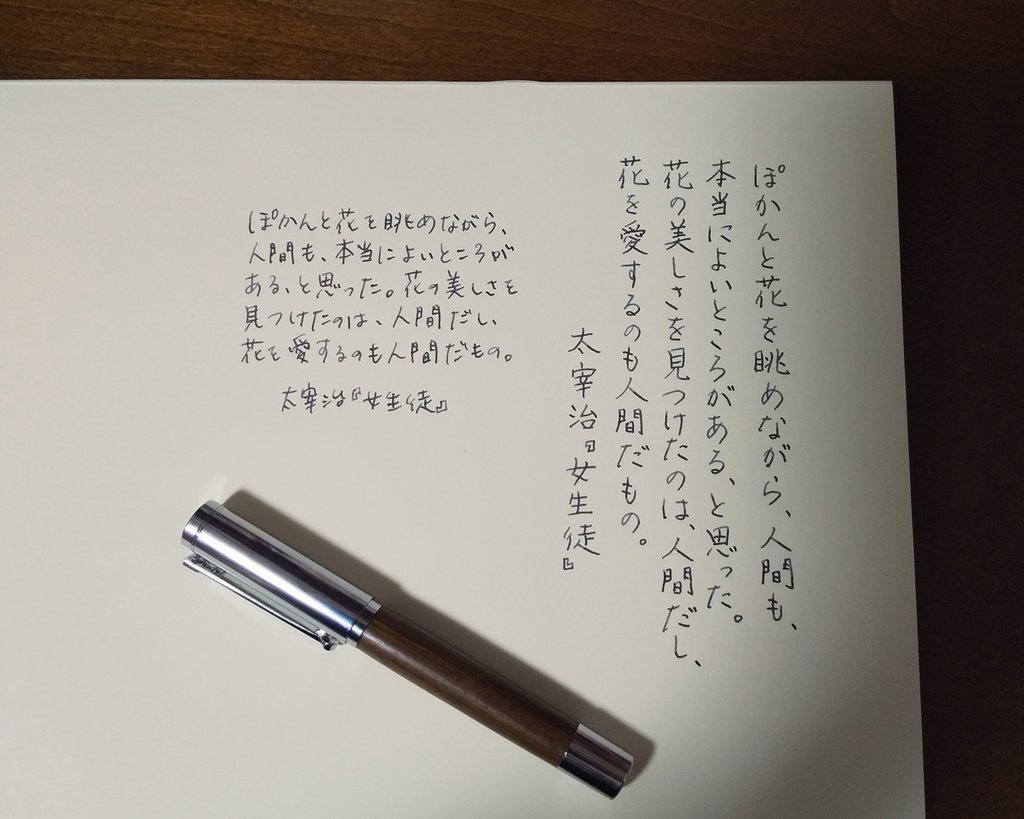 ぽかんと花を眺めながら、人間も、
本当によいところがある、と思った。
花の美しさを見つけたのは、人間だし、
花を愛するのも人間だもの。
太宰治『女生徒』
ぽかんと花を眺めながら、
人間も、本当によいところが
ある、と思った。花の美しさを
見つけたのは、人間だし、
花を愛するのも人間だもの。
太宰治『女生徒』